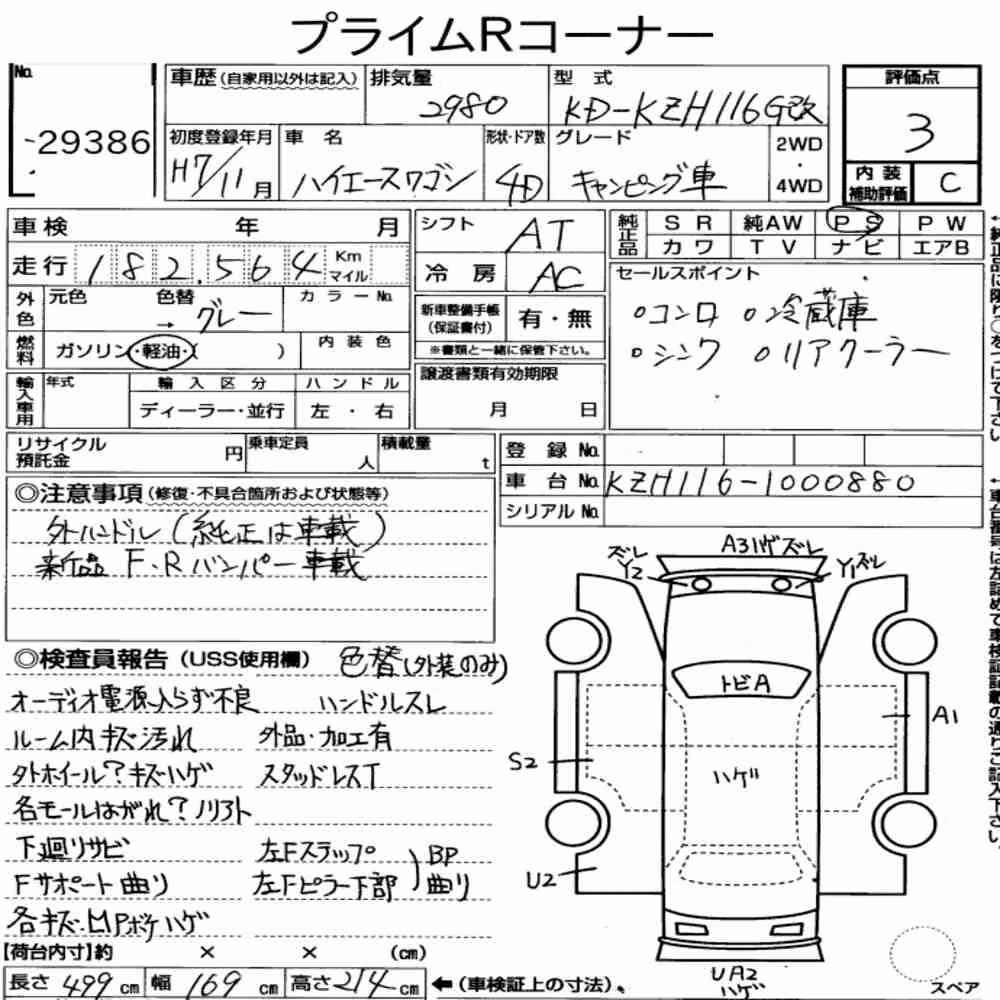 プライムRコーナー
No.
-29386
車歴(自家用以外は記入)
排気量
2980
型 式
KD-KZH116G改
評価点
3
初度登録年月
H7/11月
車 名
ハイエースワゴン
形状・ドア数
4D
グレード
キャンピング車
2WD
・
4WD
内 装
補助評価
C
車検 年 月
走行 182,564 Km
マイル
シフト
AT
冷 房
AC
純正品
SR 純AW PS PW
カワ TV ナビ エアB
外色
元色 色替
→ グレー
カラーNo.
燃料
ガソリン・軽油・( )
内 装 色
新車整備手帳
(保証書付)
有・無
※書類と一緒に保管下さい。
セールスポイント
○コンロ ○冷蔵庫
○シンク ○リアクーラー
輸入車用
年式
輸 入 区 分
ハ ン ド ル
ディーラー・並行
左 ・ 右
譲渡書類有効期限
月 日
リサイクル
預託金
円
乗車定員
人
積載量
t
登 録 No.
車 台 No. KZH116-1000880
シリアル No.
◎注意事項(修復・不具合箇所および状態等)
外ハンドル(純正は車載)
新品 F・Rバンパー車載
◎検査員報告(USS使用欄) 色替(外装のみ)
オーディオ電源入らず不良 ハンドルスレ
ルーム内キズ汚れ 外品・加工有
外ホイール?キズハゲ スタッドレスT
各モールはがれ?ノリフト
下廻りサビ 左Fステップ
Fサポート曲り 左Fピラー下部
BP
曲り
各キズ・UPボケハゲ
【荷台内寸】約 × × (cm)
長さ 499 cm 幅 169 cm 高さ 214 cm ←(車検証上の寸法)。
ズレ
Y2
A3ハゲズレ
Y1ズレ
トビA
A1
S2
ハゲ
U2
UA2
ハゲ
スペア